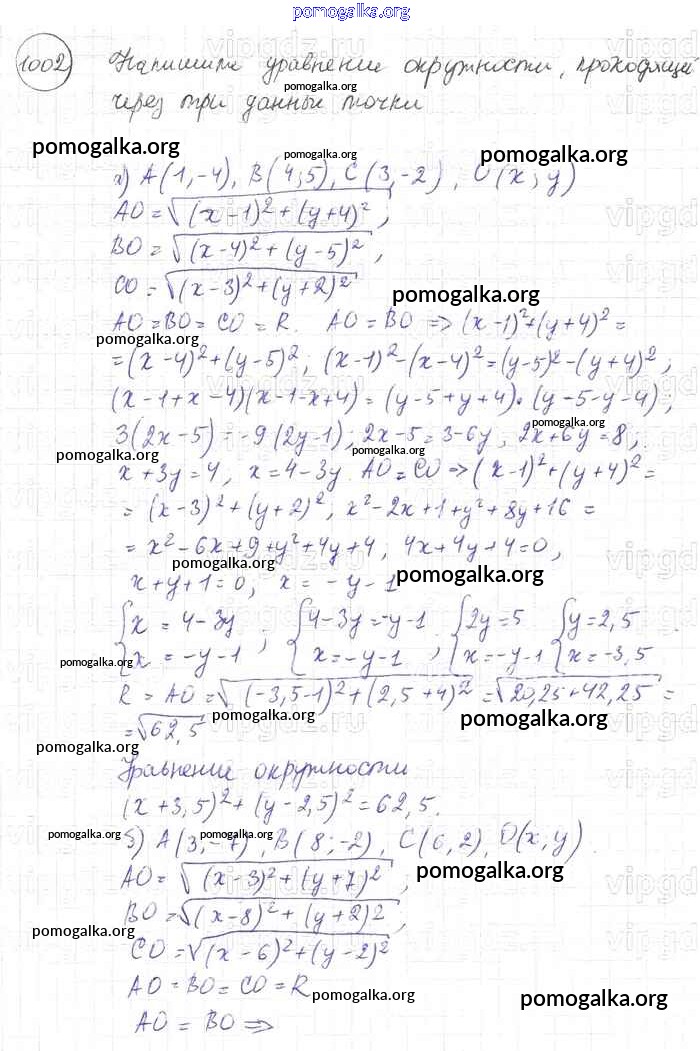 pomogalka.org
1002) Напишите уравнение окружности, проходящей
через три данные точки
pomogalka.org pomogalka.org pomogalka.org
а) A(1,-4), B(4;5), C(3,-2), O(x;y)
AO = √((x-1)²+(y+4)²),
BO = √((x-4)²+(y-5)²),
CO = √((x-3)²+(y+2)²)
pomogalka.org
AO=BO=CO=R. AO=BO => (x-1)²+(y+4)² =
pomogalka.org
=(x-4)²+(y-5)²; (x-1)²-(x-4)²=(y-5)²-(y+4)²;
(x-1+x-4)(x-1-x+4)=(y-5+y+4)·(y-5-y-4);
pomogalka.org
3(2x-5)=-9(2y-1); 2x-5=3-6y, 2x+6y=8;
pomogalka.org pomogalka.org
x+3y=4, x=4-3y. AO=CO => (x-1)²+(y+4)² =
= (x-3)²+(y+2)², x²-2x+1+y²+8y+16 =
= x²-6x+9+y²+4y+4, 4x+4y+4=0,
pomogalka.org pomogalka.org
x+y+1=0, x = -y-1
{x = 4-3y; {4-3y=-y-1; {2y=5 {y=2,5
{x = -y-1 {x=-y-1 {x=-y-1 {x=-3,5
pomogalka.org
R = AO = √((-3,5-1)²+(2,5+4)²) = √(20,25+42,25) =
pomogalka.org
= √62,5
pomogalka.org
Уравнение окружности
(x+3,5)²+(y-2,5)²=62,5.
pomogalka.org pomogalka.org
б) A(3;-7), B(8;-2), C(6,2), O(x,y).
AO = √((x-3)²+(y+7)²),
pomogalka.org
BO = √((x-8)²+(y+2)2),
pomogalka.org
CO = √((x-6)²+(y-2)²)
AO = BO = CO = R
pomogalka.org pomogalka.org
AO = BO =>